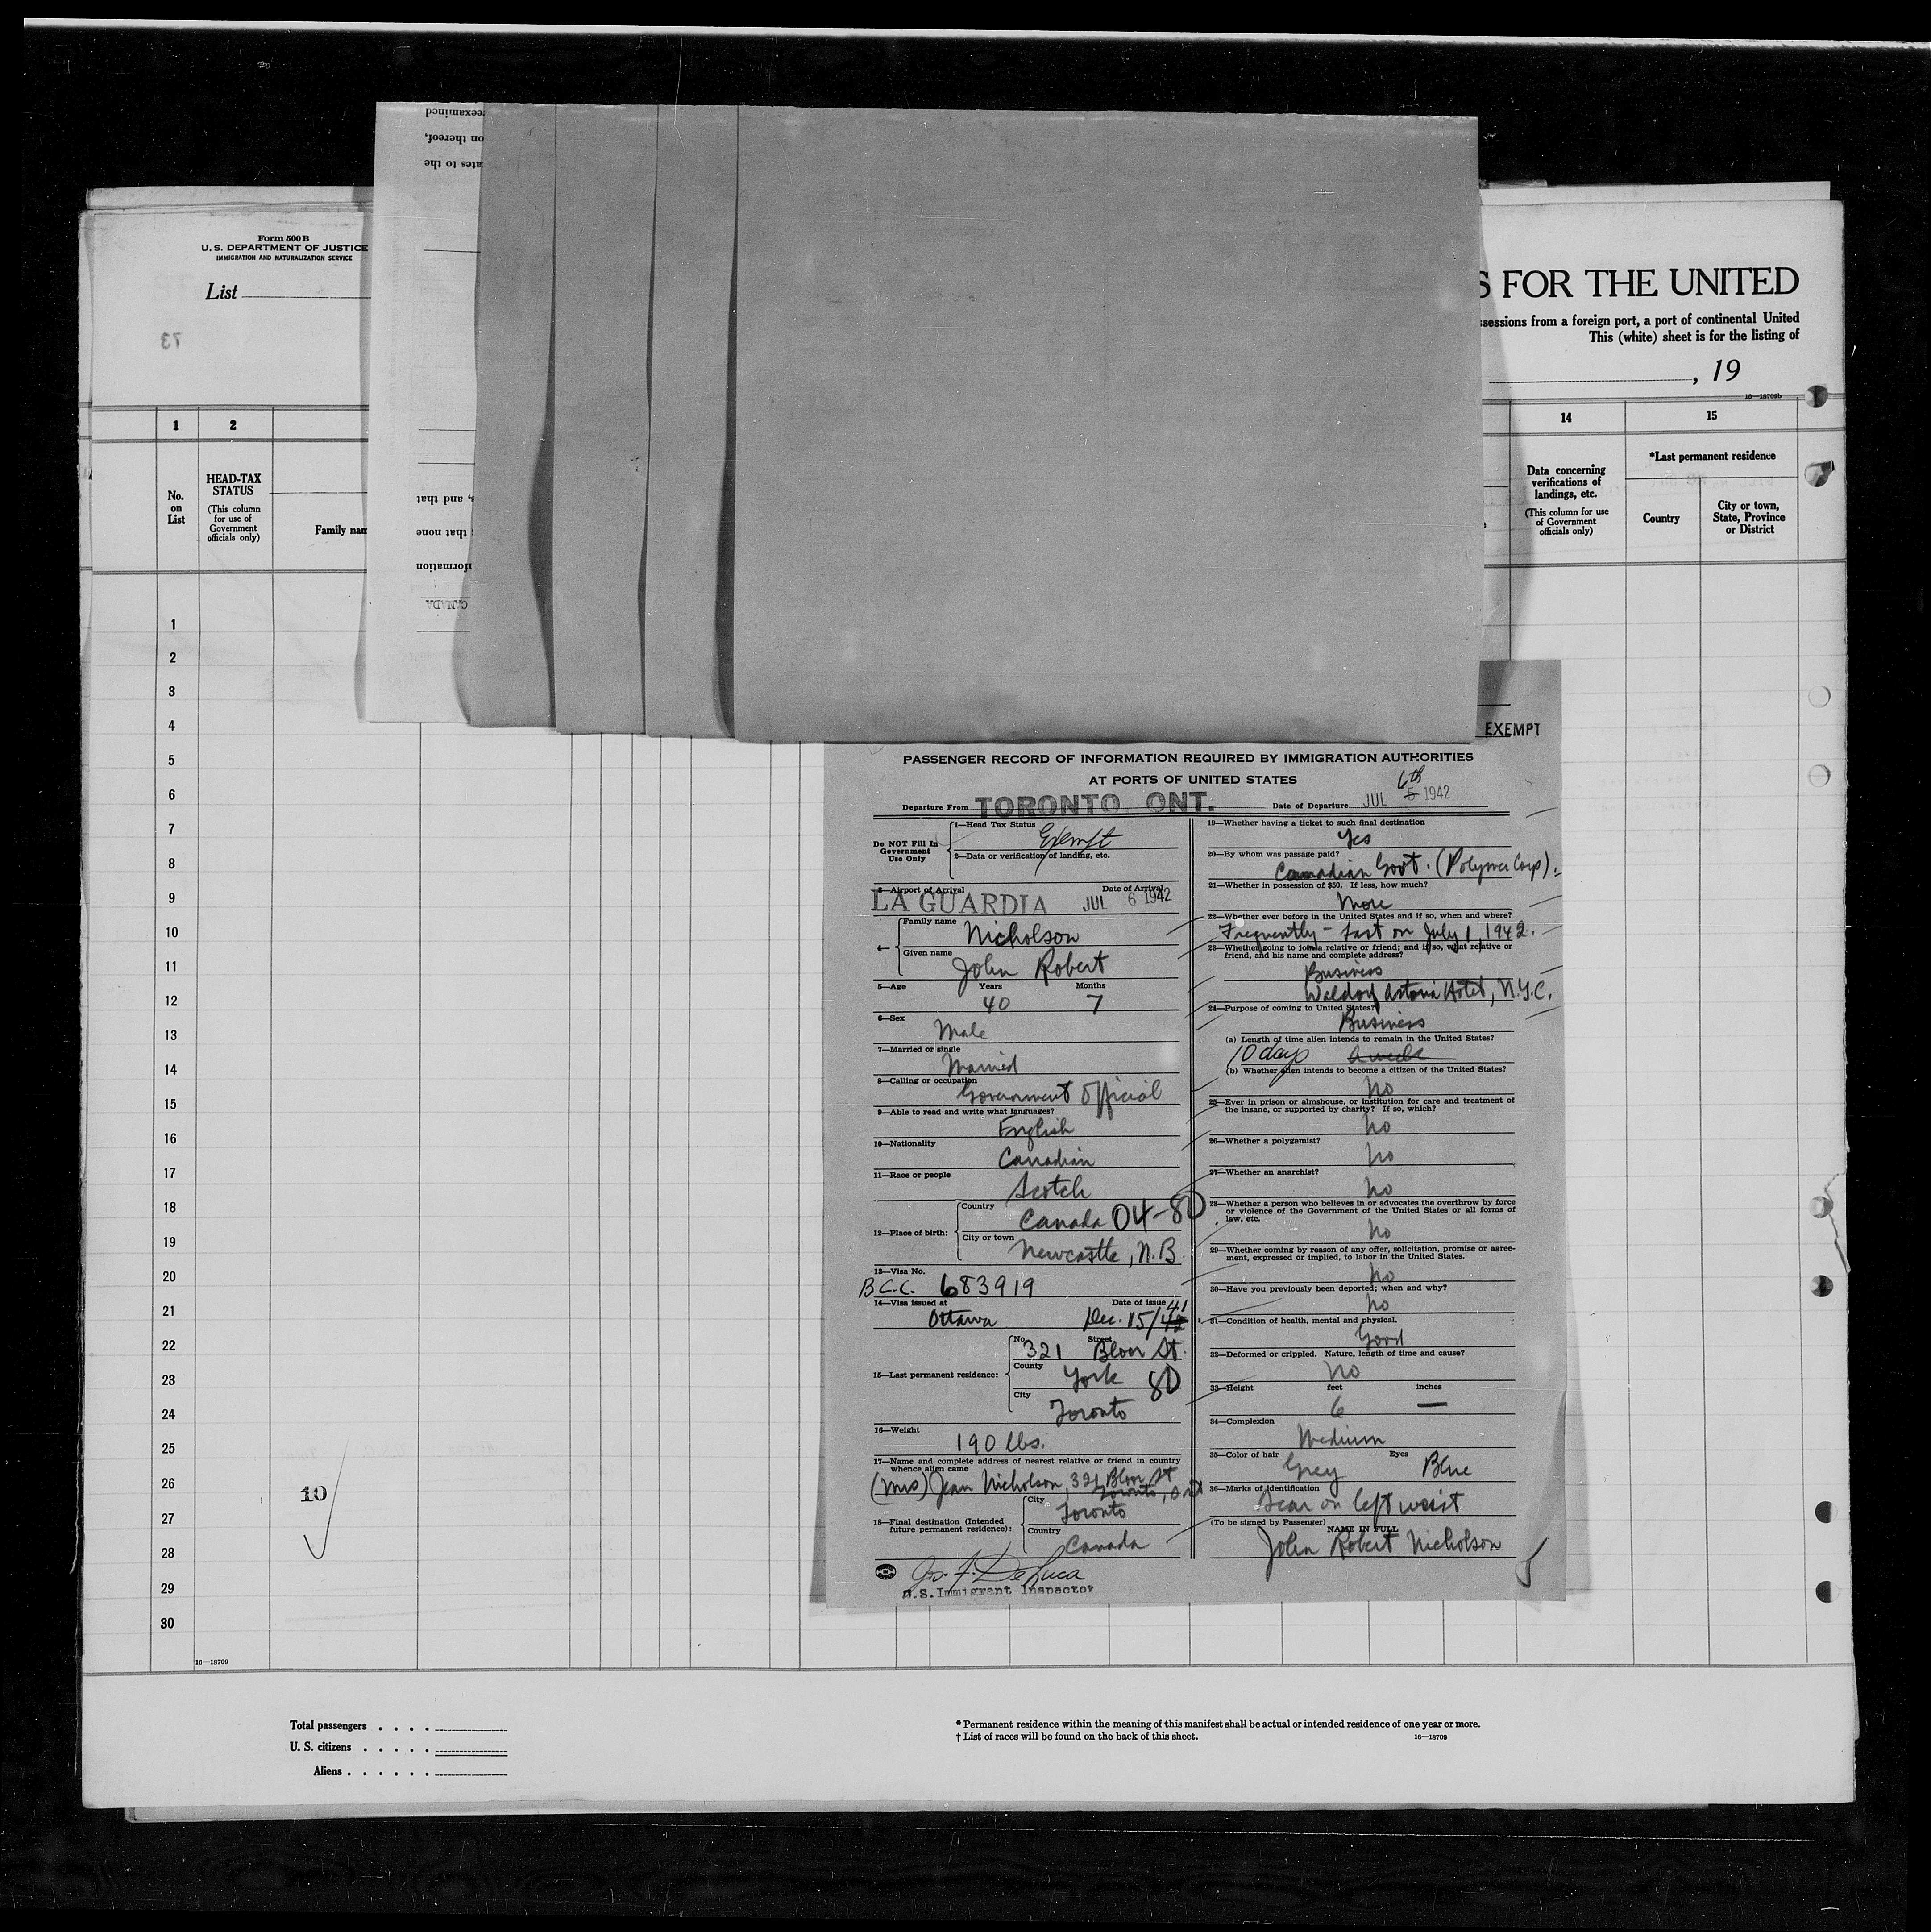 Form 500 B
U. S. DEPARTMENT OF JUSTICE
IMMIGRATION AND NATURALIZATION SERVICE
List
73
S FOR THE UNITED
ssessions from a foreign port, a port of continental United
This (white) sheet is for the listing of
, 19
16—18709b
1 2 14 15
No. on List
HEAD-TAX STATUS
(This column for use of Government officials only)
Family nam
Data concerning verifications of landings, etc.
(This column for use of Government officials only)
*Last permanent residence
Country
City or town, State, Province or District
reexamined
on thereof,
ates to the
, and that
that none
nformation
CANADA
1
2
3
4
5
6
7
8
9
10
11
12
13
14
15
16
17
18
19
20
21
22
23
24
25
26
27
28
29
30
10
16—18709
EXEMPT
PASSENGER RECORD OF INFORMATION REQUIRED BY IMMIGRATION AUTHORITIES
AT PORTS OF UNITED STATES
Departure From TORONTO, ONT. Date of Departure JUL 5 6th 1942
Do NOT Fill In Government Use Only
1—Head Tax Status Exempt
2—Data or verification of landing, etc.
3—Airport of Arrival Date of Arrival
LA GUARDIA JUL 6 1942
4— Family name Nicholson
Given name John Robert
5—Age Years Months
40 7
6—Sex
Male
7—Married or single
Married
8—Calling or occupation
Government Official
9—Able to read and write what languages?
English
10—Nationality
Canadian
11—Race or people
Scotch
12—Place of birth: Country Canada 04-80
City or town Newcastle, N.B.
13—Visa No.
B.C.C. 683919
14—Visa issued at Date of issue
Ottawa Dec. 15/42 41
15—Last permanent residence: No. 321 Street Bloor St.
County York 80
City Toronto
16—Weight
190 lbs.
17—Name and complete address of nearest relative or friend in country whence alien came
(Mrs) Jean Nicholson, 321 Bloor St
Toronto, Ont
18—Final destination (Intended future permanent residence): City Toronto
Country Canada
Jos. F. DeLuca
U.S. Immigrant Inspector
19—Whether having a ticket to such final destination
Yes
20—By whom was passage paid?
Canadian Govt. (Polymer Corp).
21—Whether in possession of $50. If less, how much?
More
22—Whether ever before in the United States and if so, when and where?
Frequently - Last on July 1, 1942.
23—Whether going to join a relative or friend; and if so, what relative or friend, and his name and complete address?
Business
Waldorf Astoria Hotel, N.Y.C.
24—Purpose of coming to United States?
Business
(a) Length of time alien intends to remain in the United States?
10 days A week
(b) Whether alien intends to become a citizen of the United States?
No
25—Ever in prison or almshouse, or institution for care and treatment of the insane, or supported by charity? If so, which?
No
26—Whether a polygamist?
No
27—Whether an anarchist?
No
28—Whether a person who believes in or advocates the overthrow by force or violence of the Government of the United States or all forms of law, etc.
No
29—Whether coming by reason of any offer, solicitation, promise or agreement, expressed or implied, to labor in the United States.
No
30—Have you previously been deported; when and why?
No
31—Condition of health, mental and physical.
Good
32—Deformed or crippled. Nature, length of time and cause?
No
33—Height feet inches
6 —
34—Complexion
Medium
35—Color of hair Eyes
Grey Blue
36—Marks of identification
Scar on left wrist
(To be signed by Passenger) NAME IN FULL
John Robert Nicholson
Total passengers . . . .
U. S. citizens . . . . .
Aliens . . . . . .
* Permanent residence within the meaning of this manifest shall be actual or intended residence of one year or more.
† List of races will be found on the back of this sheet.
16—18709